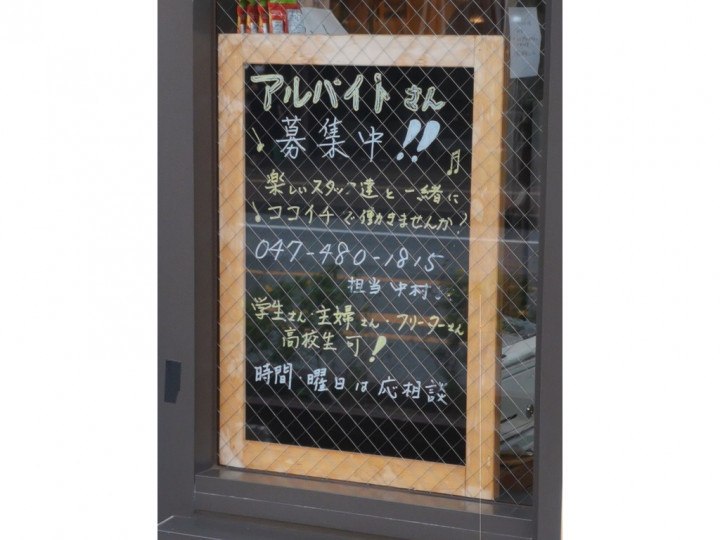 アルバイトさん
募集中!!
楽しいスタッフ達と一緒に
ココイチで働きませんか?
047-480-1815
担当 中村
学生さん・主婦さん・フリーターさん
高校生可!
時間・曜日は応相談